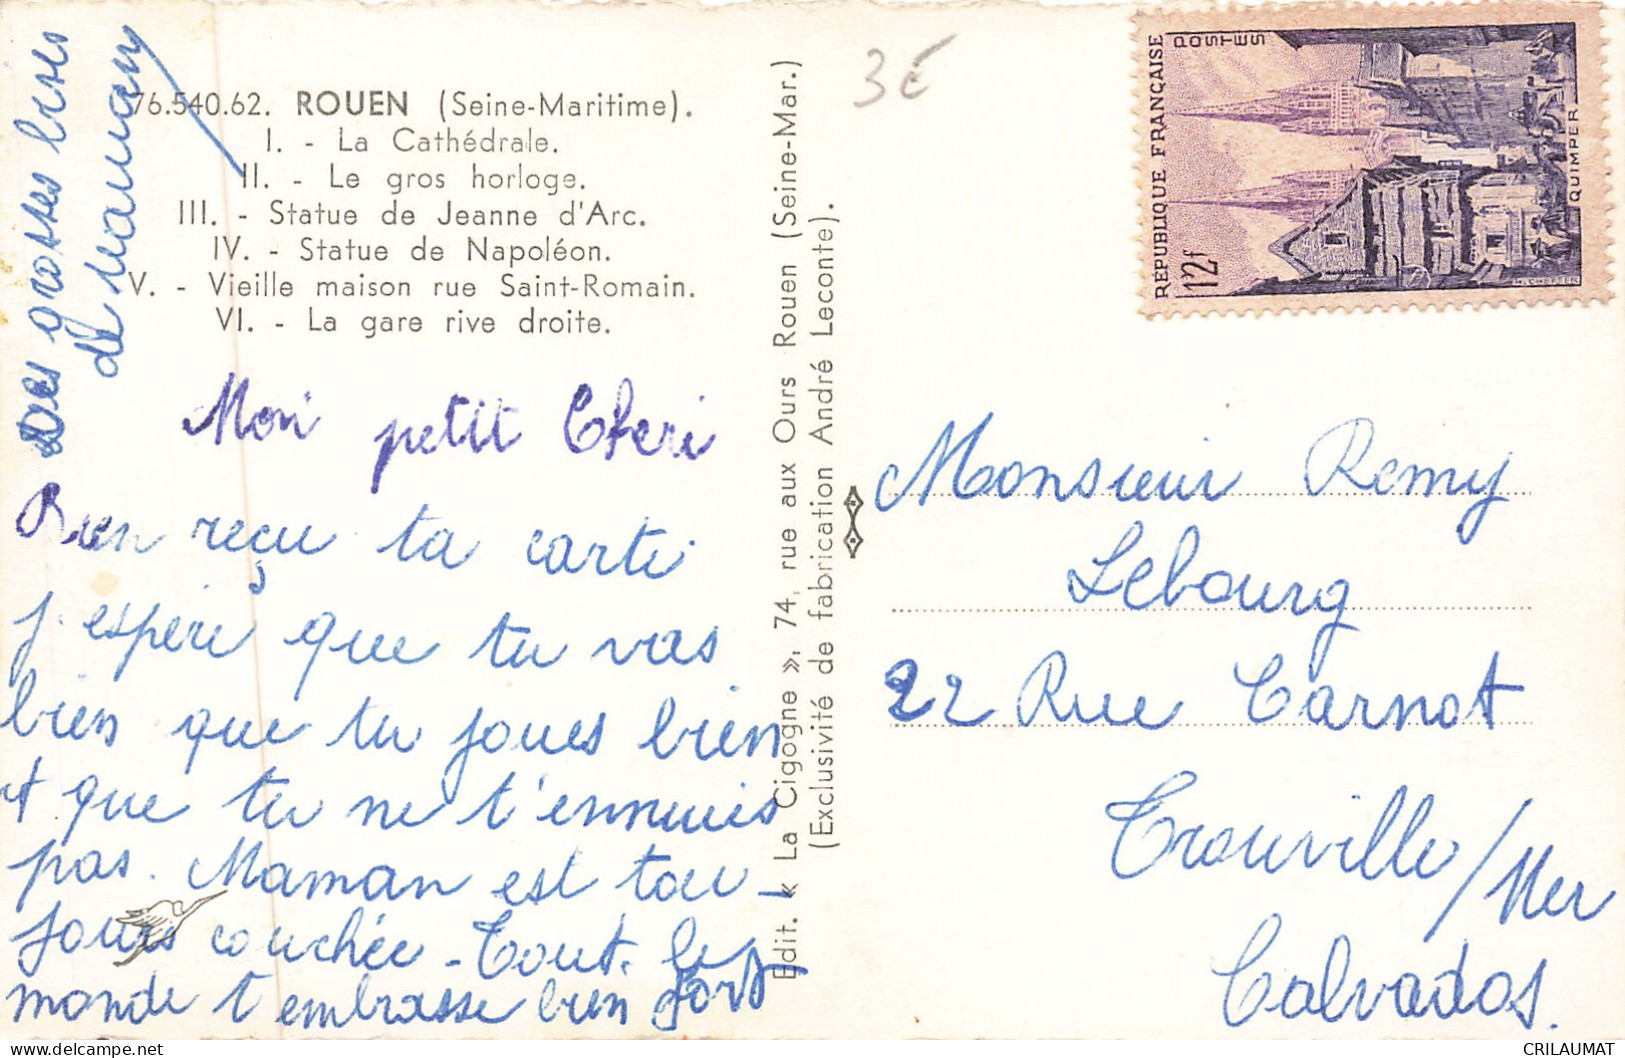 76.540.62. ROUEN (Seine-Maritime).
I. - La Cathédrale.
II. - Le gros horloge.
III. - Statue de Jeanne d'Arc.
IV. - Statue de Napoléon.
V. - Vieille maison rue Saint-Romain.
VI. - La gare rive droite.
Des grosses bises
de Maman
Mon petit Cheri
Bien reçu ta carte
j'espère que tu vas
bien que tu joues bien
et que tu ne t'ennuies
pas. Maman est tou-
jours couchée - Tout le
monde t'embrasse bien fort
Edit. « La Cigogne », 74, rue aux Ours Rouen (Seine-Mar.)
(Exclusivité de fabrication André Leconte).
3€
REPUBLIQUE FRANÇAISE
POSTES
12f
QUIMPER
Monsieur Remy
Lebourg
22 Rue Carnot
Trouville/Mer
Calvados.
CRILAUMAT